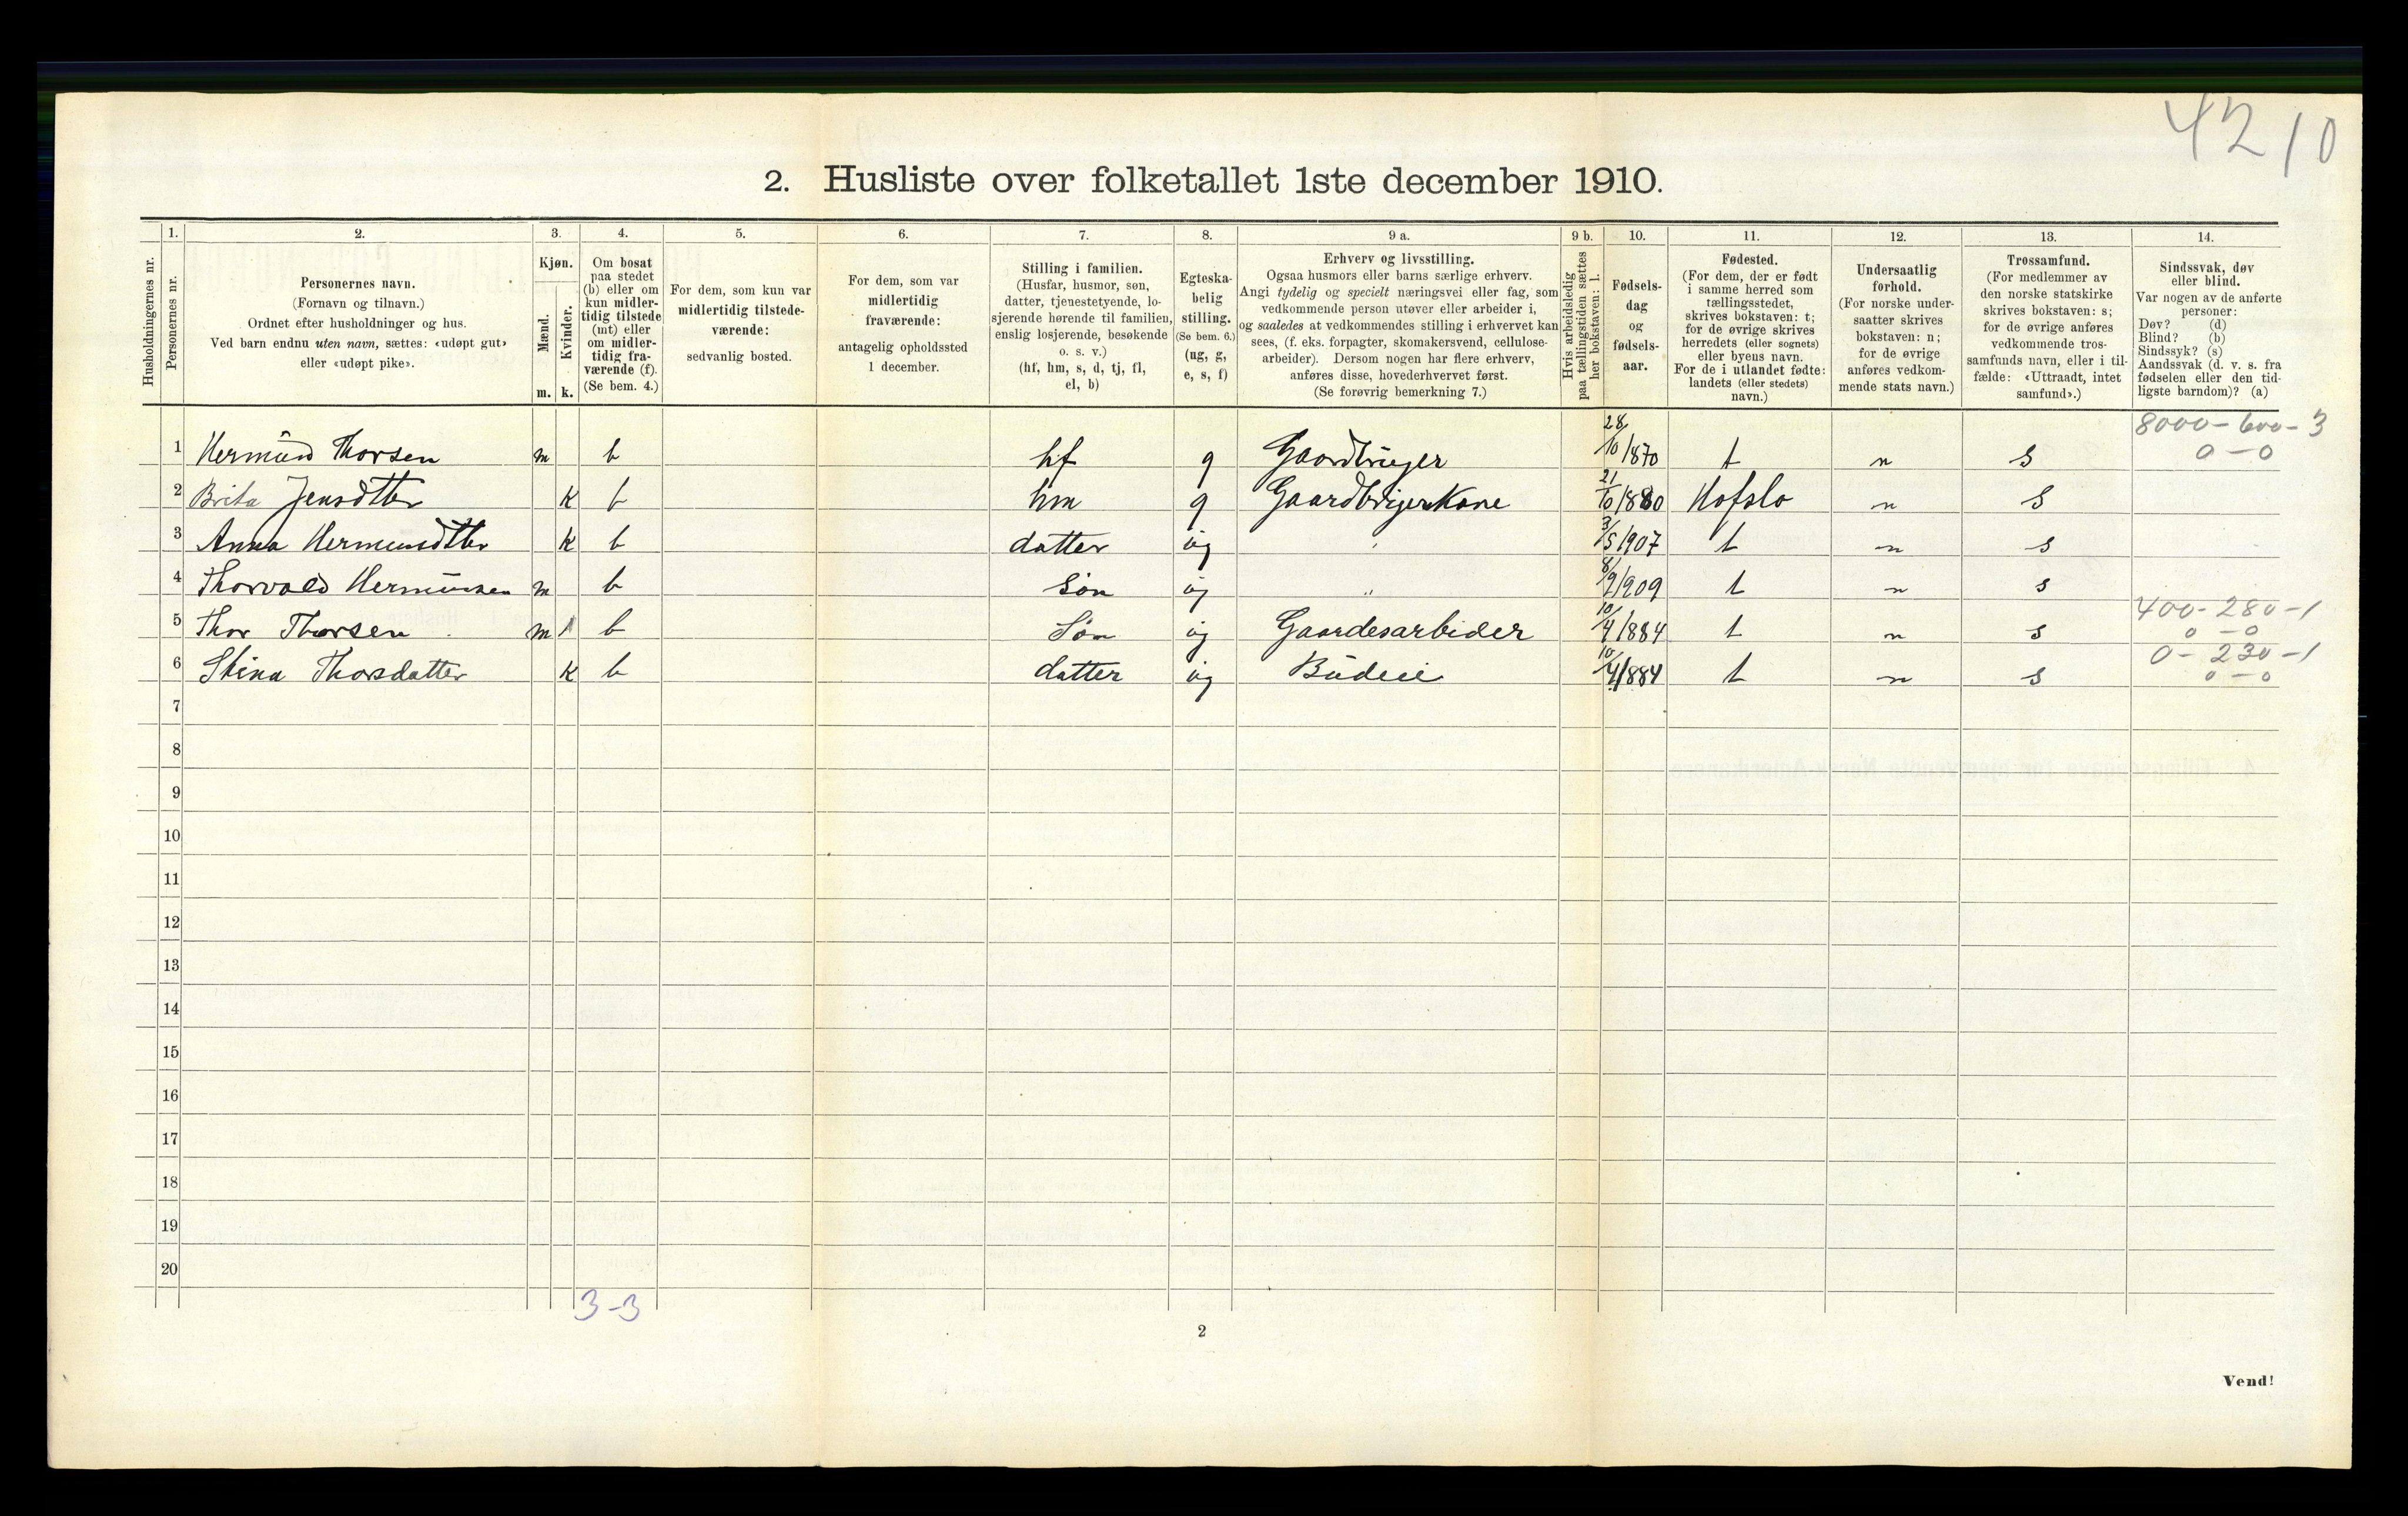 42 10
2. Husliste over folketallet 1ste december 1910.
1. 2. 3. 4. 5. 6. 7. 8. 9 a. 9 b. 10. 11. 12. 13. 14.
Husholdningernes nr.
Personernes nr.
Personernes navn.
(Fornavn og tilnavn.)
Ordnet efter husholdninger og hus.
Ved barn endnu uten navn, sættes: «udøpt gut»
eller «udøpt pike».
Kjøn.
Mænd.
Kvinder.
m. k.
Om bosat
paa stedet
(b) eller om
kun midler-
tidig tilstede
(mt) eller
om midler-
tidig fra-
værende (f).
(Se bem. 4.)
For dem, som kun var
midlertidig tilstede-
værende:
sedvanlig bosted.
For dem, som var
midlertidig
fraværende:
antagelig opholdssted
1 december.
Stilling i familien.
(Husfar, husmor, søn,
datter, tjenestetyende, lo-
sjerende hørende til familien,
enslig losjerende, besøkende
o. s. v.)
(hf, hm, s, d, tj, fl,
el, b)
Egteska-
belig
stilling.
(Se bem. 6.)
(ug, g,
e, s, f)
Erhverv og livsstilling.
Ogsaa husmors eller barns særlige erhverv.
Angi tydelig og specielt næringsvei eller fag, som
vedkommende person utøver eller arbeider i,
og saaledes at vedkommendes stilling i erhvervet kan
sees, (f. eks. forpagter, skomakersvend, cellulose-
arbeider). Dersom nogen har flere erhverv,
anføres disse, hovederhvervet først.
(Se forøvrig bemerkning 7.)
Hvis arbeidsledig
paa tællingstiden sættes
her bokstaven: l.
Fødsels-
dag
og
fødsels-
aar.
Fødested.
(For dem, der er født
i samme herred som
tællingsstedet,
skrives bokstaven: t;
for de øvrige skrives
herredets (eller sognets)
eller byens navn.
For de i utlandet fødte:
landets (eller stedets)
navn.)
Undersaatlig
forhold.
(For norske under-
saatter skrives
bokstaven: n;
for de øvrige
anføres vedkom-
mende stats navn.)
Trossamfund.
(For medlemmer av
den norske statskirke
skrives bokstaven: s;
for de øvrige anføres
vedkommende tros-
samfunds navn, eller i til-
fælde: «Uttraadt, intet
samfund».)
Sindssvak, døv
eller blind.
Var nogen av de anførte
personer:
Døv? (d)
Blind? (b)
Sindssyk? (s)
Aandssvak (d. v. s. fra
fødselen eller den tid-
ligste barndom)? (a)
8000-600-3
1 Hermund Thorsen m b hf g Gaardbruger 28/10/870 t n s 0-0
2 Brita Jensdtter k b hm g Gaardbrugerkone 21/10/880 Hafslo n s
3 Anna Hermundtter k b datter ug " 3/5/907 t n s
4 Thorvald Hermunsen m b søn ug " 8/9/909 t n s
400-280-1
5 Thor Thorsen m b Søn ug Gaardesarbider 10/4/884 t n s 0-0
0-230-1
6 Stina Thorsdatter k b datter ug Budeie 10/4/884 t n s 0-0
7
8
9
10
11
12
13
14
15
16
17
18
19
20
3-3
2
Vend!